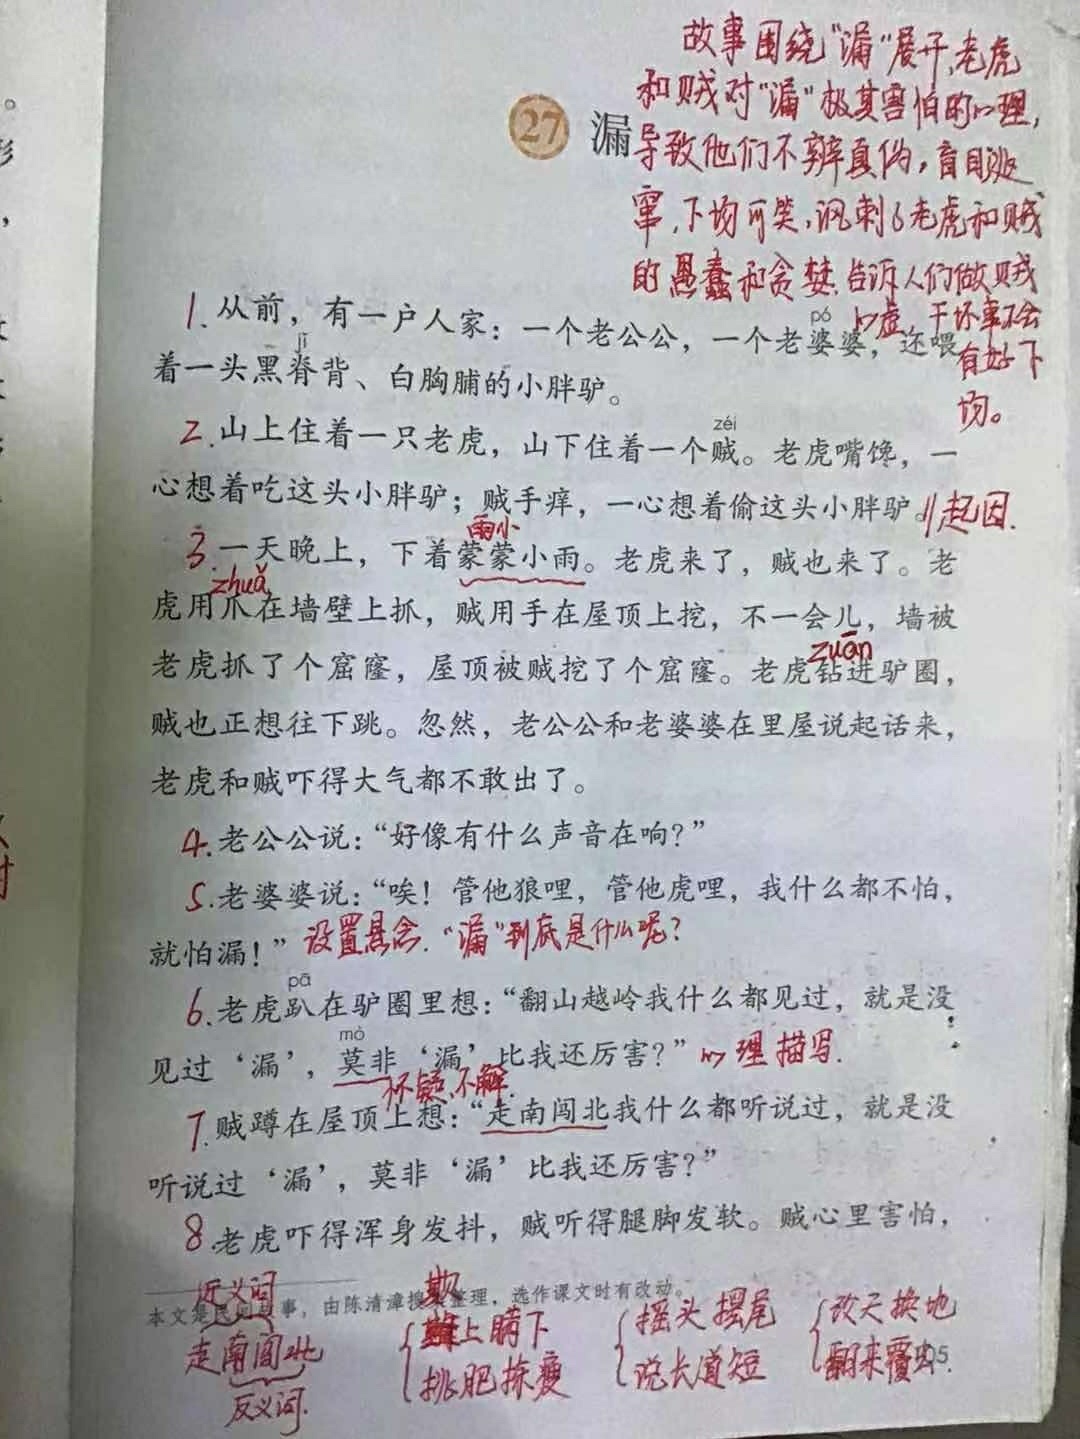 故事围绕“漏”展开,老虎
和贼对“漏”极其害怕的心理,
27 漏
导致他们不辨真伪,盲目逃
窜,下场可笑,讽刺了老虎和贼
的愚蠢和贪婪.告诉人们做贼
心虚 干坏事不会
有好下
场。
1.从前,有一户人家:一个老公公,一个老婆婆,还喂
jǐ
pó
着一头黑脊背、白胸脯的小胖驴。
zéi
2.山上住着一只老虎,山下住着一个贼。老虎嘴馋,一
心想着吃这头小胖驴;贼手痒,一心想着偷这头小胖驴。∥起因.
雨小
3.一天晚上,下着蒙蒙小雨。老虎来了,贼也来了。老
zhuǎ
虎用爪在墙壁上抓,贼用手在屋顶上挖,不一会儿,墙被
zuān
老虎抓了个窟窿,屋顶被贼挖了个窟窿。老虎钻进驴圈,
贼也正想往下跳。忽然,老公公和老婆婆在里屋说起话来,
老虎和贼吓得大气都不敢出了。
4.老公公说:“好像有什么声音在响?”
5.老婆婆说:“唉!管他狼哩,管他虎哩,我什么都不怕,
就怕漏!” 设置悬念.“漏”到底是什么呢?
pā
6.老虎趴在驴圈里想:“翻山越岭我什么都见过,就是没
mò
见过‘漏’,莫非‘漏’比我还厉害?” 心理描写.
怀疑,不解.
7.贼蹲在屋顶上想:“走南闯北我什么都听说过,就是没
听说过‘漏’,莫非‘漏’比我还厉害?”
8.老虎吓得浑身发抖,贼听得腿脚发软。贼心里害怕,
本文是民间故事,由陈清漳搜集整理,选作课文时有改动。
近义词
走南闯北
反义词.
欺上瞒下
挑肥拣瘦
摇头摆尾
说长道短
改天换地
翻来覆去
5